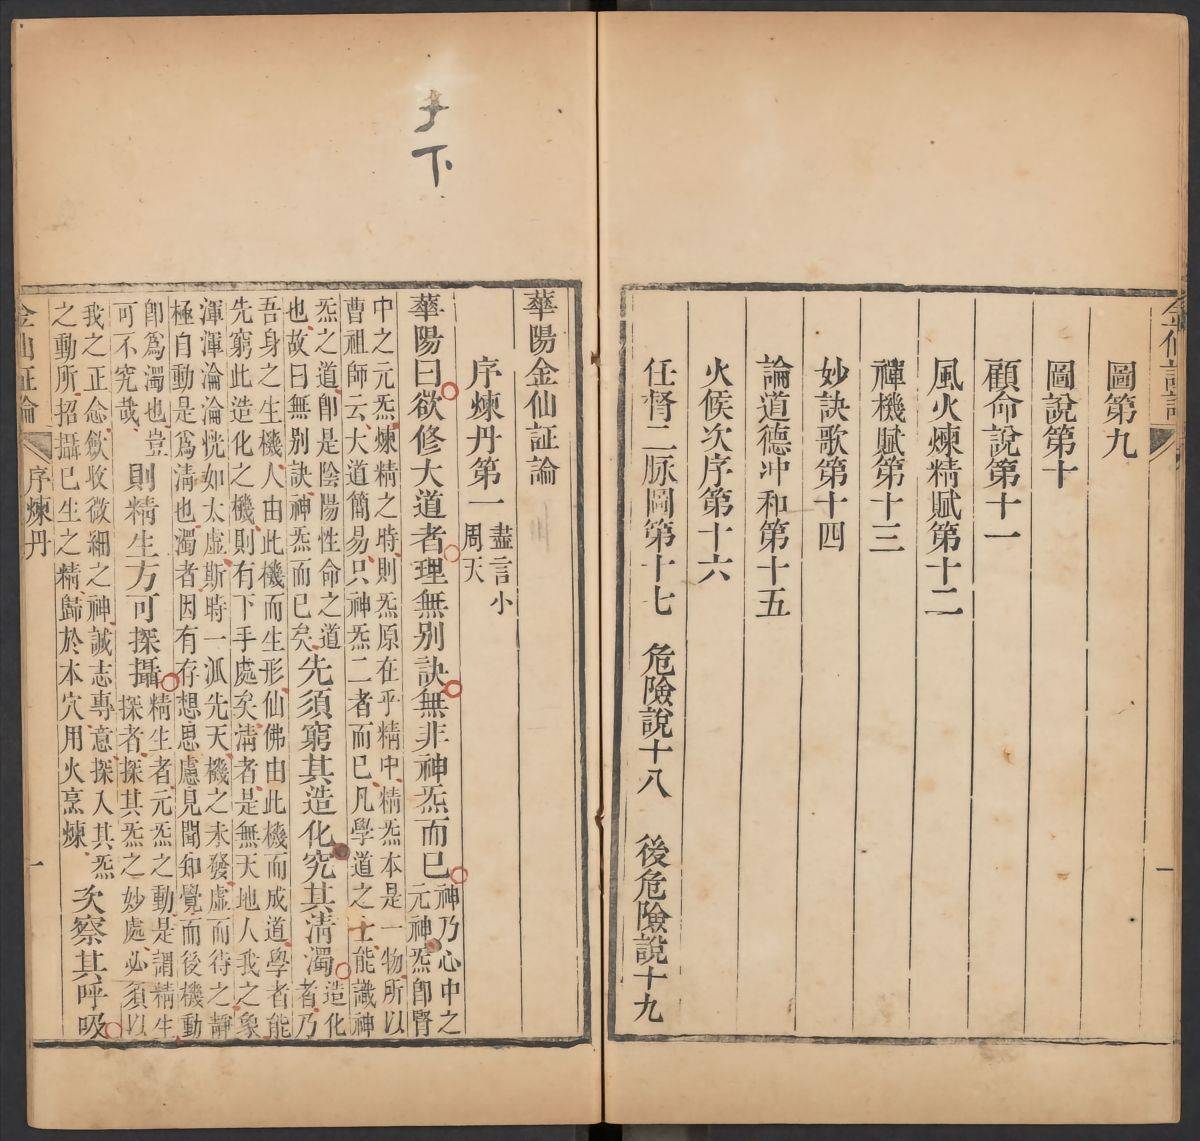 圖第九
圖說第十
顧命說第十一
風火煉精賦第十二
禪機賦第十三
妙訣歌第十四
論道德冲和第十五
火候次序第十六
任督二脉圖第十七　危險說十八　後危險說十九
一
下
華陽金仙証論
序煉丹第一 盡言小
周天
華陽曰欲修大道者理無別訣無非神炁而已 神乃心中之
元神炁卽腎
中之元炁煉精之時則炁原在乎精中精炁本是一物所以
曹祖師云大道簡易只神炁二者而已凡學道之士能識神
炁之道卽是陰陽性命之道
也故曰無別訣神炁而已矣
先須窮其造化究其清濁 造化
者乃
吾身之生機人由此機而生形仙佛由此機而成道學者能
先窮此造化之機則有下手處矣清者是無天地人我之象
渾渾淪淪恍如太虛斯時一派先天機之未發虛而待之靜
極自動是爲清也濁者因有存想思慮見聞知覺而後機動
卽爲濁也豈
可不究哉
則精生方可探攝 精生者元炁之動是謂精生
探者探其炁之妙處必須以
我之正念歛收微細之神誠志專意探入其炁
之動所招攝已生之精歸於本穴用火烹煉
次察其呼吸
金仙証論
序煉丹
一